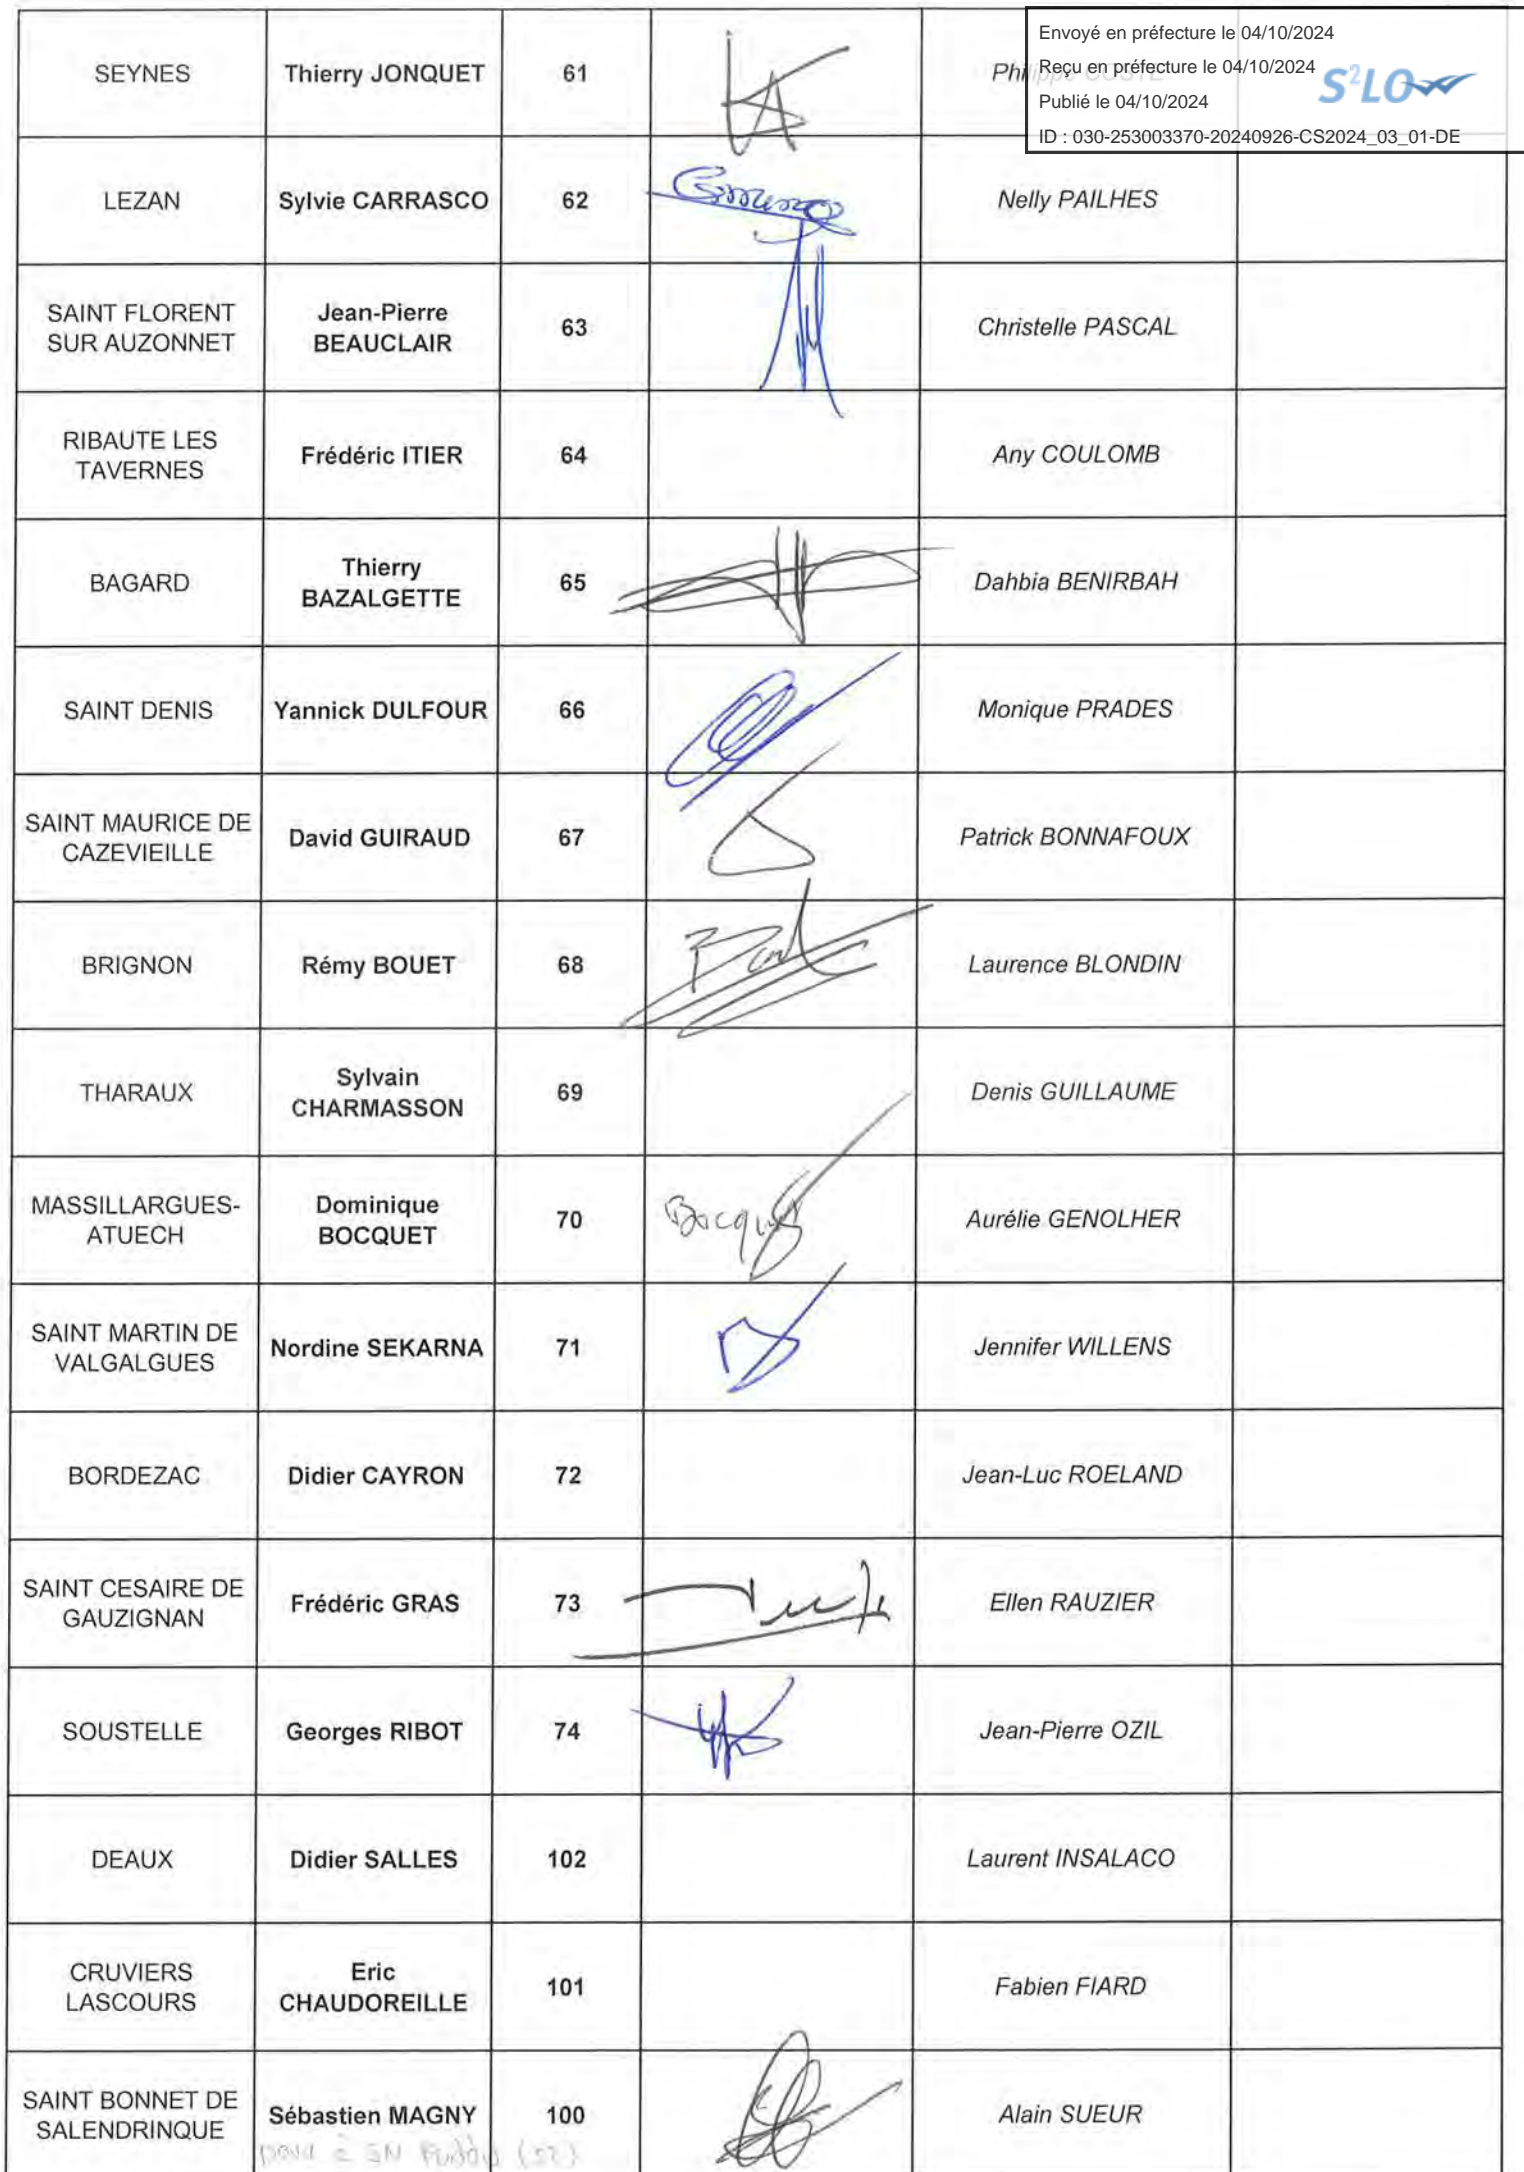 Envoyé en préfecture le 04/10/2024
Reçu en préfecture le 04/10/2024
Publié le 04/10/2024
S²LOW
ID : 030-253003370-20240926-CS2024_03_01-DE
SEYNES Thierry JONQUET 61
LEZAN Sylvie CARRASCO 62 Nelly PAILHES
SAINT FLORENT SUR AUZONNET Jean-Pierre BEAUCLAIR 63 Christelle PASCAL
RIBAUTE LES TAVERNES Frédéric ITIER 64 Any COULOMB
BAGARD Thierry BAZALGETTE 65 Dahbia BENIRBAH
SAINT DENIS Yannick DULFOUR 66 Monique PRADES
SAINT MAURICE DE CAZEVIEILLE David GUIRAUD 67 Patrick BONNAFOUX
BRIGNON Rémy BOUET 68 Laurence BLONDIN
THARAUX Sylvain CHARMASSON 69 Denis GUILLAUME
MASSILLARGUES-ATUECH Dominique BOCQUET 70 Bocquet Aurélie GENOLHER
SAINT MARTIN DE VALGALGUES Nordine SEKARNA 71 Jennifer WILLENS
BORDEZAC Didier CAYRON 72 Jean-Luc ROELAND
SAINT CESAIRE DE GAUZIGNAN Frédéric GRAS 73 Ellen RAUZIER
SOUSTELLE Georges RIBOT 74 Jean-Pierre OZIL
DEAUX Didier SALLES 102 Laurent INSALACO
CRUVIERS LASCOURS Eric CHAUDOREILLE 101 Fabien FIARD
SAINT BONNET DE SALENDRINQUE Sébastien MAGNY 100 Alain SUEUR